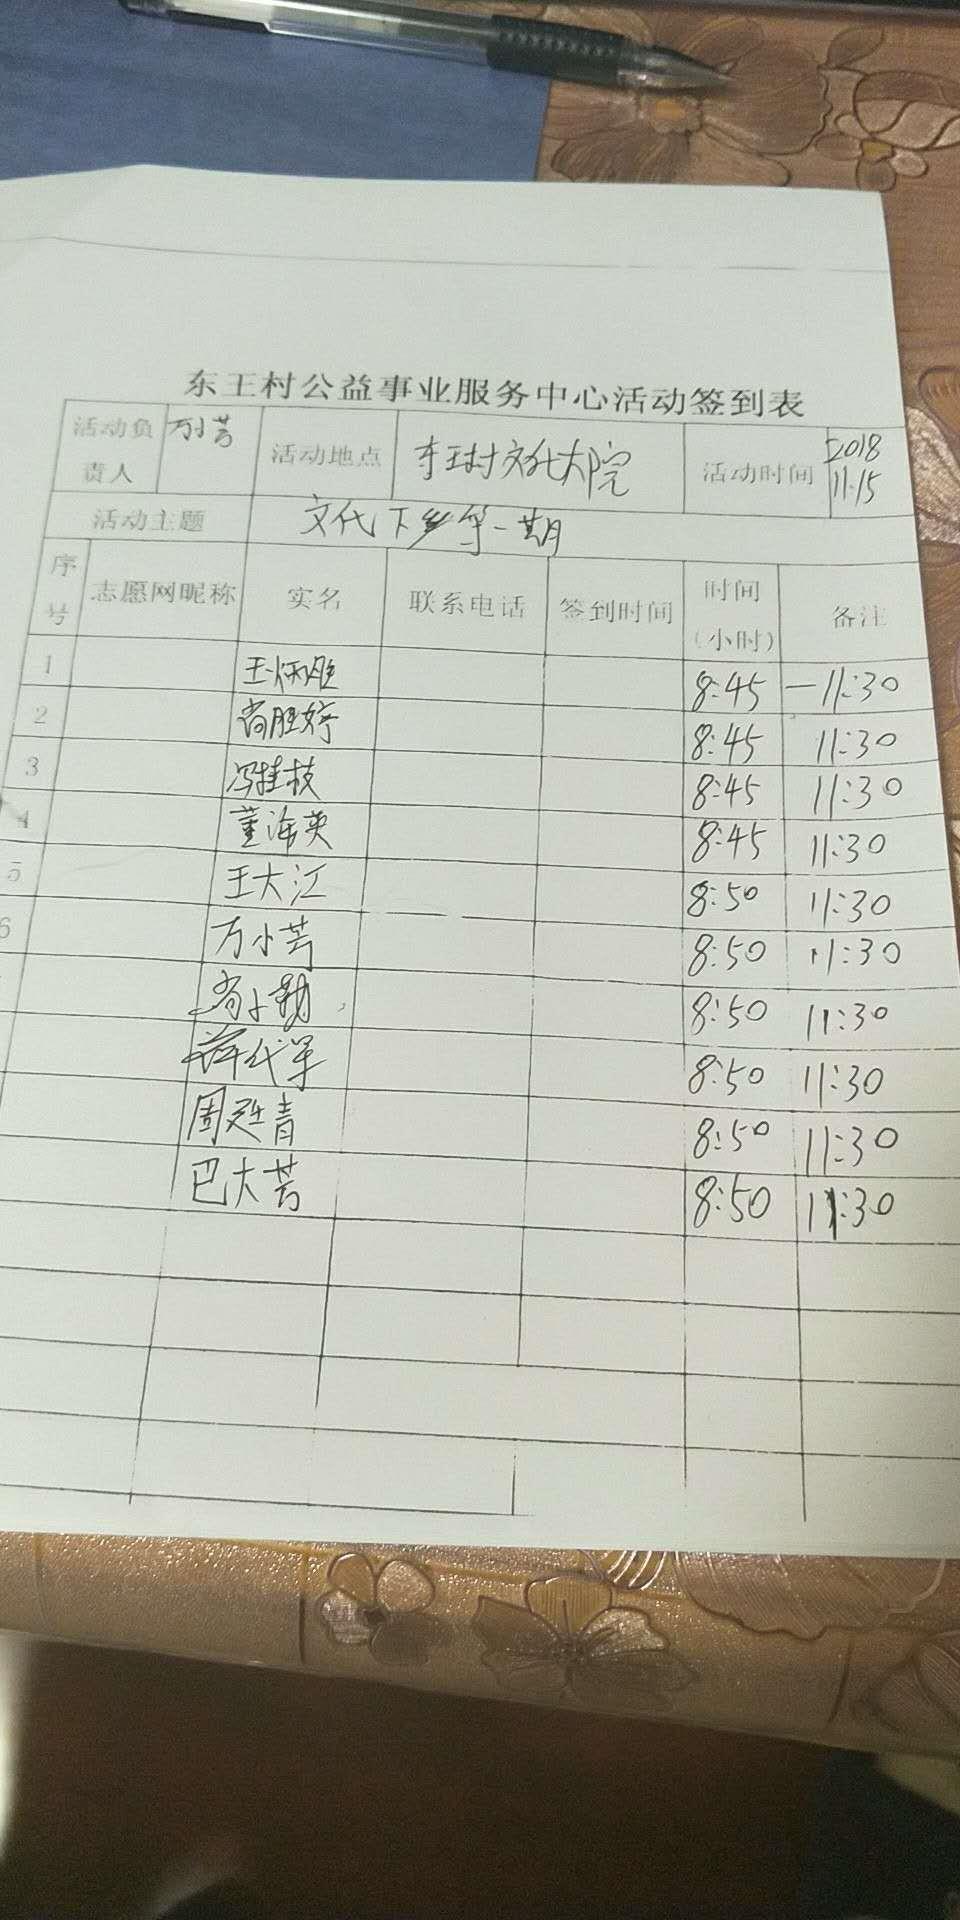 东王村公益事业服务中心活动签到表
活动负责人 万小芳 活动地点 东王村文化大院 活动时间 2018 11.15
活动主题 文代下乡第一期
序号 志愿网昵称 实名 联系电话 签到时间 时间(小时) 备注
1 王炳胜 8:45 — 11:30
2 尚胜婷 8:45 11:30
3 冯桂枝 8:45 11:30
4 董海英 8:45 11:30
5 王大江 8:50 11:30
6 万小芳 8:50 11:30
尚小勤 8:50 11:30
薛代军 8:50 11:30
周延青 8:50 11:30
巴大芳 8:50 11:30